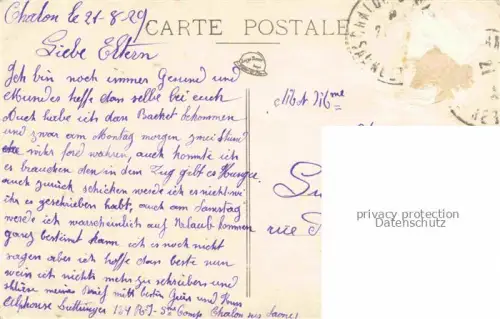 Chalon le 21-8-29
CARTE POSTALE
Liebe Eltern
Ich bin noch immer Gesund und
Mundes hoffe das selbe bei euch
Auch habe ich das Packet bekommen
und zwar am Montag morgen zwei Stund
wihr ford wahren, auch konnte ich
es brauchen den in dem Zug gebt es Hunger
auch zurück schicken werde ich es nicht wi
ihr es geschrieben habt, auch am Samstag
werde ich warscheinlich auf Urlaub kommen
ganz bestimt kann ich es noch nicht
sagen aber ich hoffe das beste nun
weis ich nichts mehr zu schreiben und
schliese meinen Brief mitt besten Grus und Kuss
Alphonse 134 R-I- 5me Comp Chalon sur Saone
M et Mme
rue
privacy protection
Datenschutz